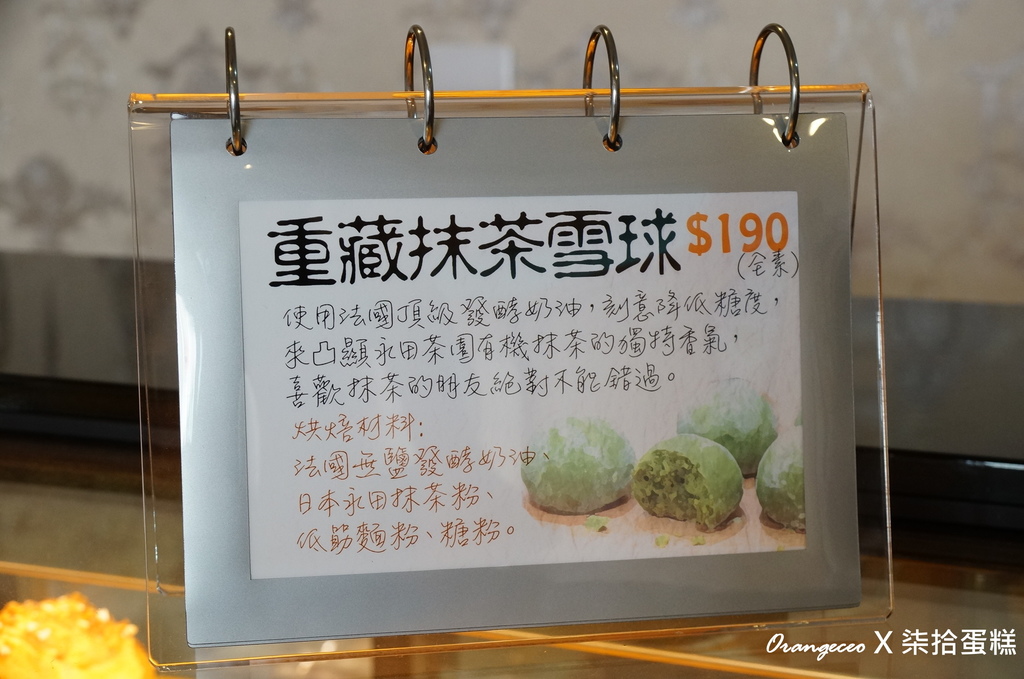 重藏抹茶雪球 $190
(全素)
使用法國頂級發酵奶油，刻意降低糖度，
來凸顯永田茶園有機抹茶的獨特香氣，
喜歡抹茶的朋友絕對不能錯過。
烘焙材料:
法國無鹽發酵奶油、
日本永田抹茶粉、
低筋麵粉、糖粉。
Orangeceo X 柒拾蛋糕